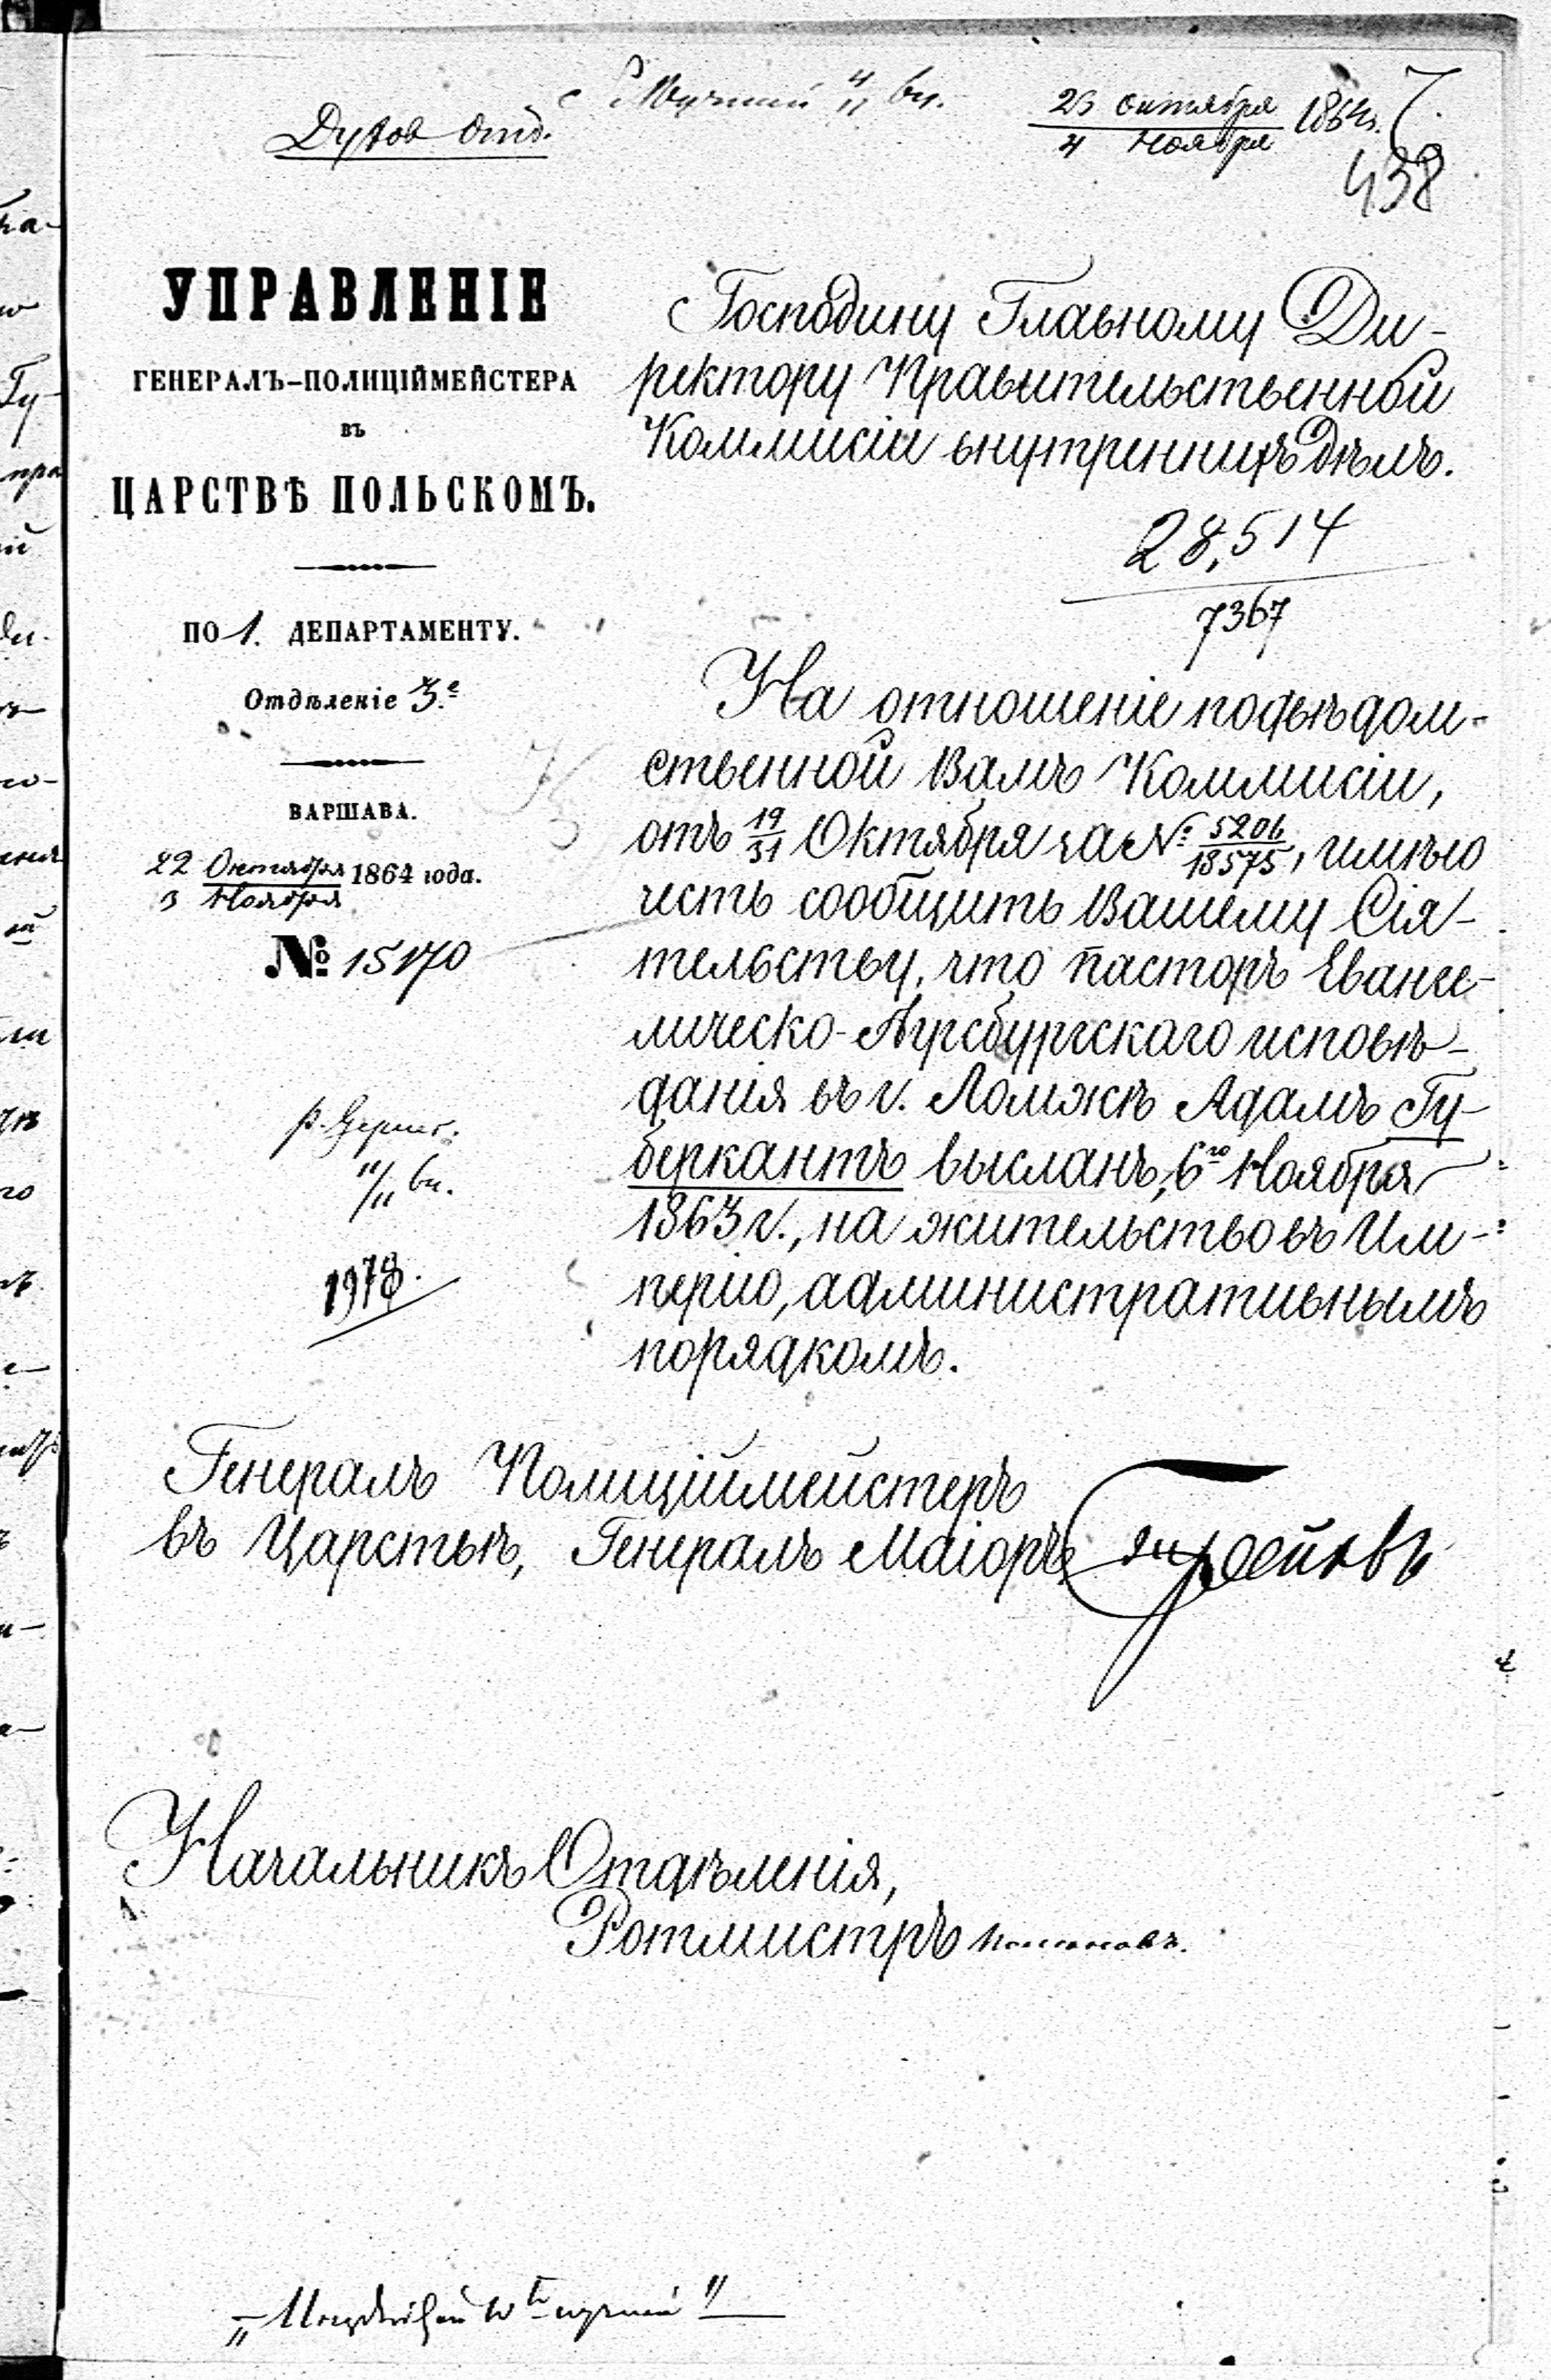 Духов Отд.
23 октября
4 Ноября 1864 г.
7.
438
УПРАВЛЕНІЕ
ГЕНЕРАЛЪ-ПОЛИЦІЙМЕЙСТЕРА
ВЪ
ЦАРСТВѢ ПОЛЬСКОМЪ.
ПО 1. ДЕПАРТАМЕНТУ.
Отдѣленіе 3.е
ВАРШАВА.
22 Октября
3 Ноября 1864 года.
№ 15170
11/11 вп.
1978.
Господину Главному Ди-
ректору Правительственной
Коммисіи внутреннихъ дѣлъ.
28,514
7367
На отношеніе подвѣдом-
ственной Вамъ Коммисіи,
отъ 19/31 Октября за № 5206/18575, имѣю
честь сообщить Вашему Сія-
тельству, что пасторъ Еванге-
лическо-Аугсбургскаго исповѣ-
данія въ г. Ломжѣ Адамъ Гу-
беркантъ высланъ, 6го Ноября
1863 г., на жительство въ Им-
перію, административнымъ
порядкомъ.
Генералъ Полиціймейстеръ
въ Царствѣ, Генералъ Маіоръ
Начальникъ Отдѣленія,
Ротмистръ